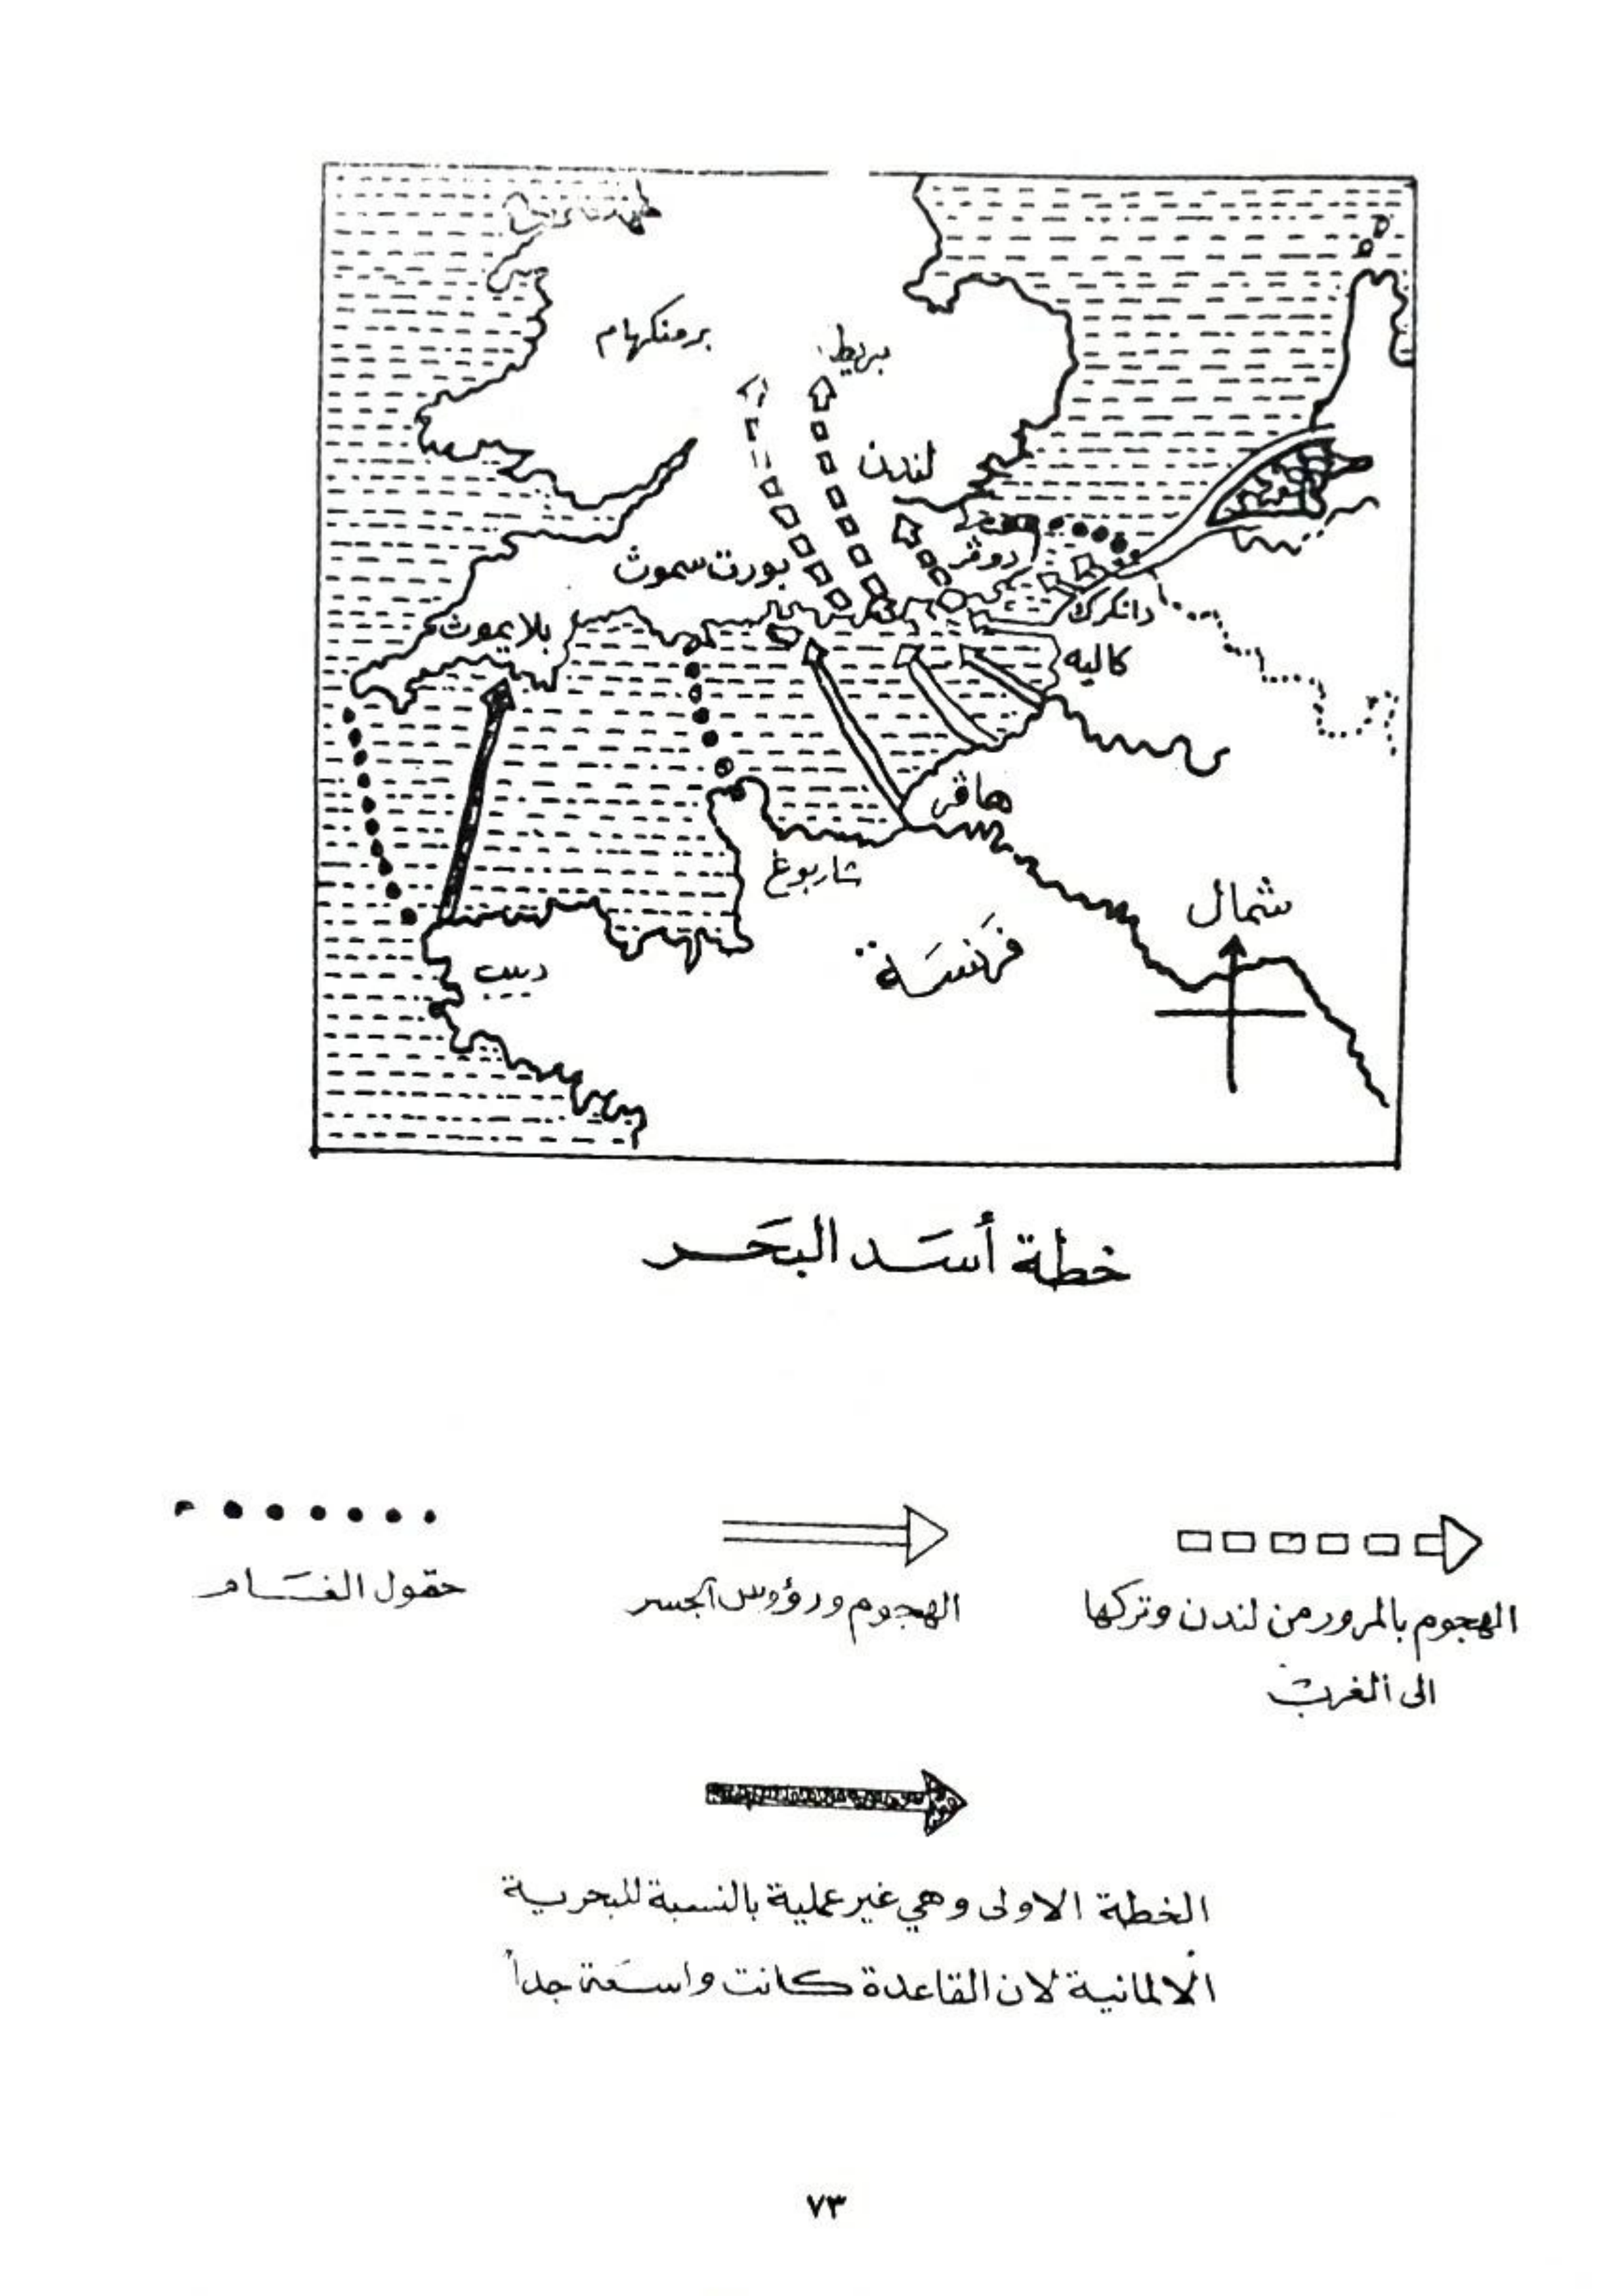 برمنكهام
بريط
لندن
دوڤر
بورت سموث
دانكرك
بلايموث
كاليه
هاڤر
شاربوغ
شمال
فرنسة
خطة أسد البحر
حقول الغام
الهجوم ورؤوس الجسر
الهجوم بالمرور من لندن وتركها
الى الغرب
الخطة الاولى وهي غير عملية بالنسبة للبحرية
الالمانية لان القاعدة كانت واسعة جداً
٧٣